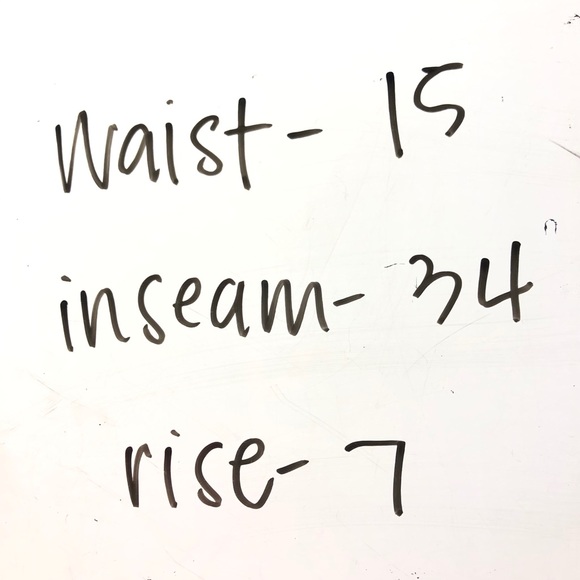 Waist- 15
inseam- 34
rise- 7